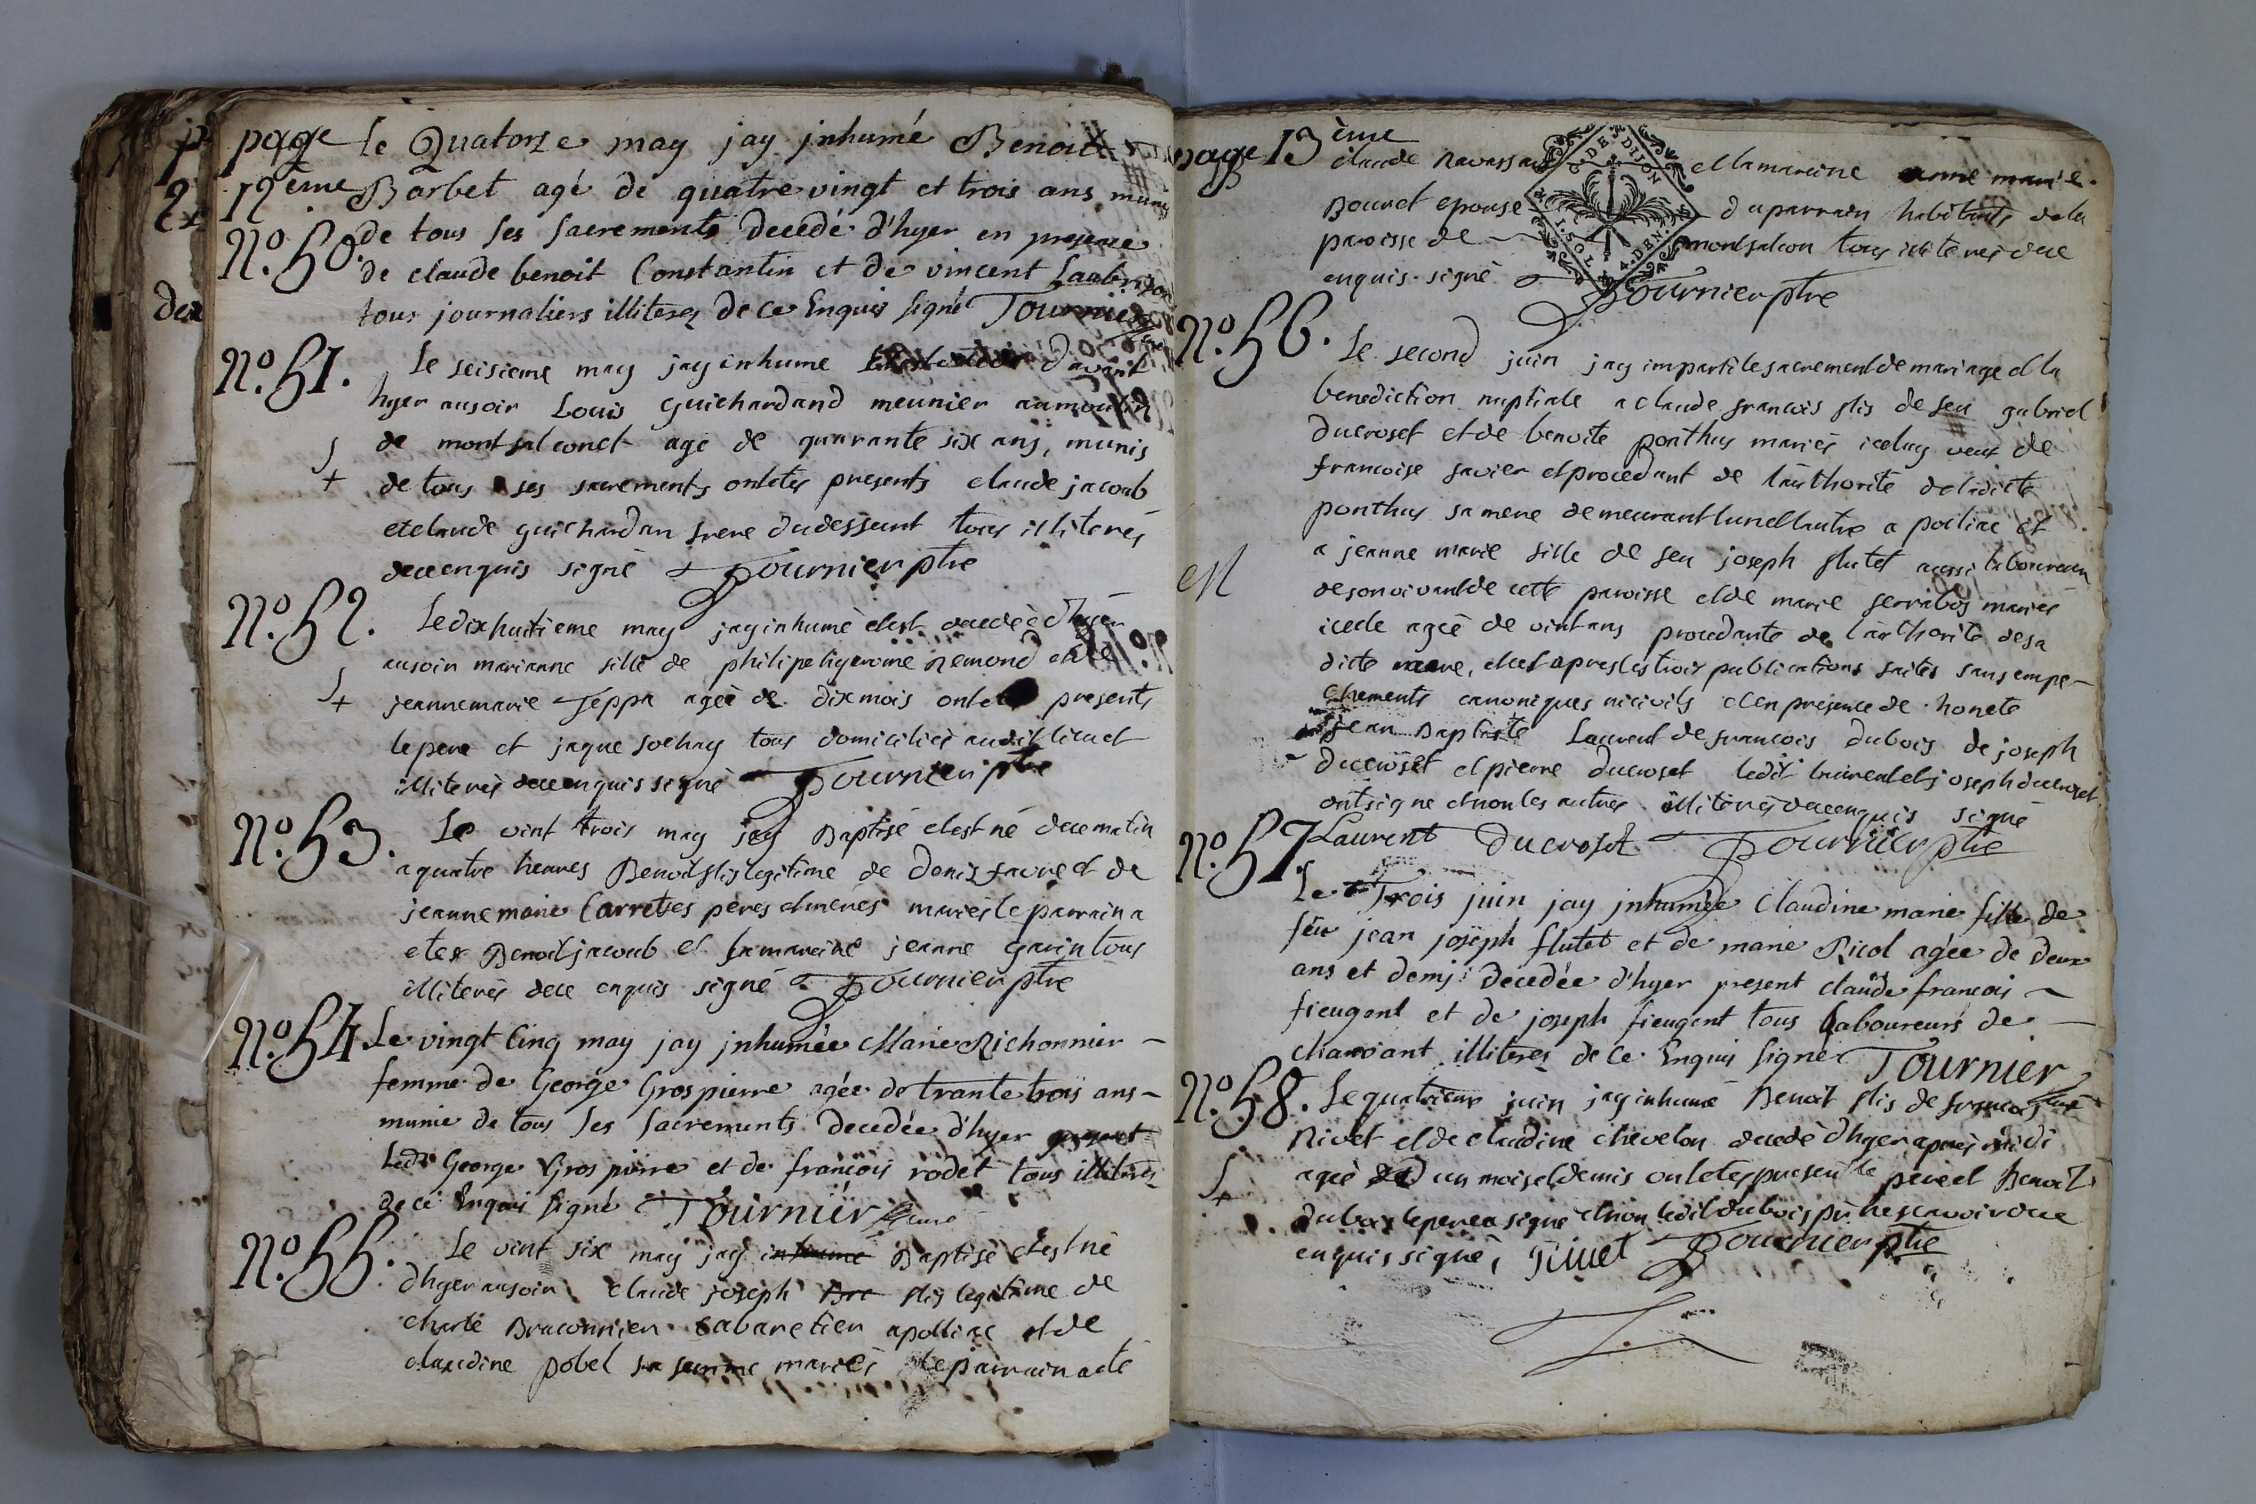 page le Quatorze may jay jnhumé Benoit
12ème Barbet agé de quatre vingt et trois ans muni
No. 50. de tous ses sacrements decedé d'hyer en presence
de claude benoit Constantin et de vincent
tous journaliers illiteres de ce Enquis signé Tournier
No. 51. Le seisieme may jay inhume davant
hyer ausoir Louis guichardand meunier aumoulin
de montfalconet agé de quarante six ans, munis
de tous ses sacrements ontetes presents claude jacoub
etclaude guichardan frere dudessunt tous illiterés
dece enquis signé Tournier ptre
No. 52. Ledixhuitieme may jay inhumé etest decedéé d'hyer
ausoir marianne fille de philipe ligerome remond et de
jeannemarie feppa ageé de dixmois ontetes presents
lepere et jaque sochay tous domiciliés audit lieu et
illiterés dece enquis signé Tournier ptre
No. 53. Le vint trois may jay Baptisé etest né dece matin
a quatre heures Benoit fils legitime de Denis favre et de
jeannemarie Carretes pères et meres mariés le parrain a
etes Benoit jacoub et la mareine jeanne gavin tous
illiterés dece enquis signé Tournier ptre
No. 54 Le vingt Cinq may jay jnhumée Marie Richonnier
femme de George Grospierre agée de trante trois ans
munie de tous ses sacrements decedée d'hyer present
Ledt George Gros pierre et de francois rodet tous illiteres
de ce Enquis signé Tournier
No. 55. Le vint six may jay inhumé Baptisé etest né
d'hyer ausoir claude joseph Bra fils legitime de
charle Braconnier cabaretier apolliac et de
claudine pobel sa femme mariés le parrain a eté
page 13ème
claude navassard et la mareine anne marie
Bouret epouse du parrain habitants de la
paroisse de montfalcon tous illiterés dece
enquis signé Tournier ptre
G. DE DIJON
I. SOL. 4. DEN.
No. 56. Le second juin jay imparti le sacrement de mariage et la
benediction nuptiale a claude francois fils de feu gabriel
Ducroset et de benoite ponthus mariés iceluy veuf de
francoise favier et procedant de l'authorité de ladicte
ponthus sa mere demeurant lun et lautre a poiliac et
M a jeanne marie fille de feu joseph flutet aussi laboureur
de son vivant de cette paroisse et de marie mariés
icelle ageé de vint ans procedante de l'authorité de sa
dicte mere, et cet apres les trois publications faites sans empe-
chements canoniques ni civils et en présence de honete
jean Baptiste Laurent de francois dubois de joseph
Ducroset et pierre ducroset ledit laurent et joseph ducroset
ont signe et non les autres illiterés dece enquis signé
No. 57. Laurent Ducroset Tournier ptre
Le Trois juin jay jnhumée Claudine marie fille de
feu jean joseph flutet et de marie Ricol agée de deux
ans et demj decedée d'hyer present claude francois
fieugent et de joseph fieugent tous Laboureurs de
charoant illiteres de ce Enquis signé Tournier
No. 58. Le quatrieme juin jay inhumé Benoit fils de francois
Rivet et de claudine chevelon decedé d'hyer apres midi
ageé de un mois et demis ont etes presents le pere et Benoit
dubois le pere a signe et non ledit dubois pr ne scavoir dece
enquis signé, Rivet Tournier ptre